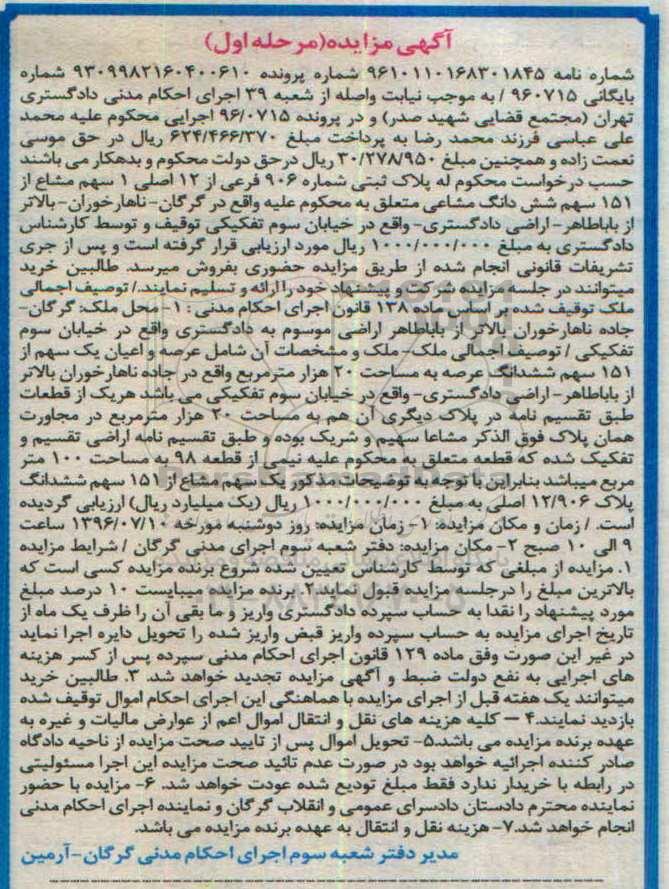 آگهی مزایده(مرحله اول)
شماره نامه ۹۶۱۰۱۱۰۱۶۸۳۰۱۸۴۵ شماره پرونده ۹۳۰۹۹۸۲۱۶۰۴۰۰۶۱۰ شماره
بایگانی ۹۶۰۷۱۵ / به موجب نیابت واصله از شعبه ۳۹ اجرای احکام مدنی دادگستری
تهران (مجتمع قضایی شهید صدر) و در پرونده ۹۶/۰۷۱۵ اجرایی محکوم علیه محمد
علی عباسی فرزند محمد رضا به پرداخت مبلغ ۶۲۴/۴۶۶/۳۷۰ ریال در حق موسی
نعمت زاده و همچنین مبلغ ۳۰/۲۷۸/۹۵۰ ریال درحق دولت محکوم و بدهکار می باشند
حسب درخواست محکوم له پلاک ثبتی شماره ۹۰۶ فرعی از ۱۲ اصلی ۱ سهم مشاع از
۱۵۱ سهم شش دانگ مشاعی متعلق به محکوم علیه واقع در گرگان-ناهارخوران-بالاتر
از باباطاهر- اراضی دادگستری- واقع در خیابان سوم تفکیکی توقیف و توسط کارشناس
دادگستری به مبلغ ۱۰۰۰/۰۰۰/۰۰۰ ریال مورد ارزیابی قرار گرفته است و پس از جری
تشریفات قانونی انجام شده از طریق مزایده حضوری بفروش میرسد. طالبین خرید
میتوانند در جلسه مزایده شرکت و پیشنهاد خود را ارائه و تسلیم نمایند./ توصیف اجمالی
ملک توقیف شده بر اساس ماده ۱۳۸ قانون اجرای احکام مدنی : ۱- محل ملک: گرگان-
جاده ناهارخوران بالاتر از باباطاهر اراضی موسوم به دادگستری واقع در خیابان سوم
تفکیکی / توصیف اجمالی ملک- ملک و مشخصات آن شامل عرصه و اعیان یک سهم از
۱۵۱ سهم ششدانگ عرصه به مساحت ۲۰ هزار مترمربع واقع در جاده ناهارخوران بالاتر
از باباطاهر- اراضی دادگستری- واقع در خیابان سوم تفکیکی می باشد هریک از قطعات
طبق تقسیم نامه در پلاک دیگری آن هم به مساحت ۲۰ هزار مترمربع در مجاورت
همان پلاک فوق الذکر مشاعا سهیم و شریک بوده و طبق تقسیم نامه اراضی تقسیم و
تفکیک شده که قطعه متعلق به محکوم علیه نیمی از قطعه ۹۸ به مساحت ۱۰۰ متر
مربع میباشد بنابراین با توجه به توضیحات مذکور یک سهم مشاع از ۱۵۱ سهم ششدانگ
پلاک ۱۲/۹۰۶ اصلی به مبلغ ۱۰۰۰/۰۰۰/۰۰۰ ریال (یک میلیارد ریال) ارزیابی گردیده
است. / زمان و مکان مزایده: ۱- زمان مزایده: روز دوشنبه مورخه ۱۳۹۶/۰۷/۱۰ ساعت
۹ الی ۱۰ صبح ۲- مکان مزایده: دفتر شعبه سوم اجرای مدنی گرگان / شرایط مزایده
۱. مزایده از مبلغی که توسط کارشناس تعیین شده شروع برنده مزایده کسی است که
بالاترین مبلغ را درجلسه مزایده قبول نماید.۲. برنده مزایده میبایست ۱۰ درصد مبلغ
مورد پیشنهاد را نقدا به حساب سپرده دادگستری واریز و ما بقی آن را ظرف یک ماه از
تاریخ اجرای مزایده به حساب سپرده واریز قبض واریز شده را تحویل دایره اجرا نماید
در غیر این صورت وفق ماده ۱۲۹ قانون اجرای احکام مدنی سپرده پس از کسر هزینه
های اجرایی به نفع دولت ضبط و آگهی مزایده تجدید خواهد شد. ۳. طالبین خرید
میتوانند یک هفته قبل از اجرای مزایده با هماهنگی این اجرای احکام اموال توقیف شده
بازدید نمایند.۴ – کلیه هزینه های نقل و انتقال اموال اعم از عوارض مالیات و غیره به
عهده برنده مزایده می باشد.۵- تحویل اموال پس از تایید صحت مزایده از ناحیه دادگاه
صادر کننده اجرائیه خواهد بود در صورت عدم تائید صحت مزایده این اجرا مسئولیتی
در رابطه با خریدار ندارد فقط مبلغ تودیع شده عودت خواهد شد. ۶- مزایده با حضور
نماینده محترم دادستان دادسرای عمومی و انقلاب گرگان و نماینده اجرای احکام مدنی
انجام خواهد شد.۷- هزینه نقل و انتقال به عهده برنده مزایده می باشد.
مدیر دفتر شعبه سوم اجرای احکام مدنی گرگان-آرمین